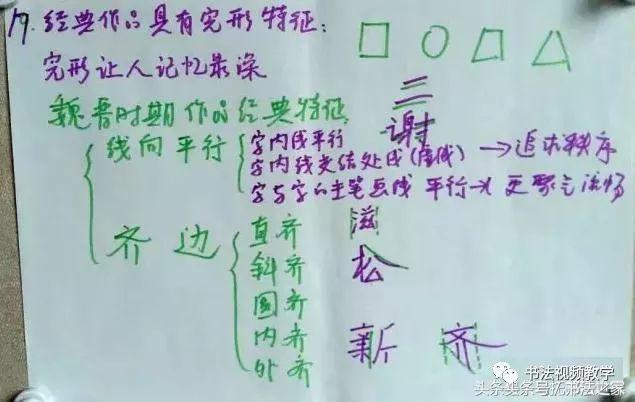 19. 经典作品具有完形特征：
完形让人记忆最深
魏晋时期作品经典特征
三
谢
线向平行
字内线平行
字内线交结处成(虚线) →追求秩序
字与字的主笔画线 平行→ 更聚气流畅
齐边
直齐 滋
斜齐 松
圆齐
内齐 新 济
外齐
书法视频教学
头条号
书法之家